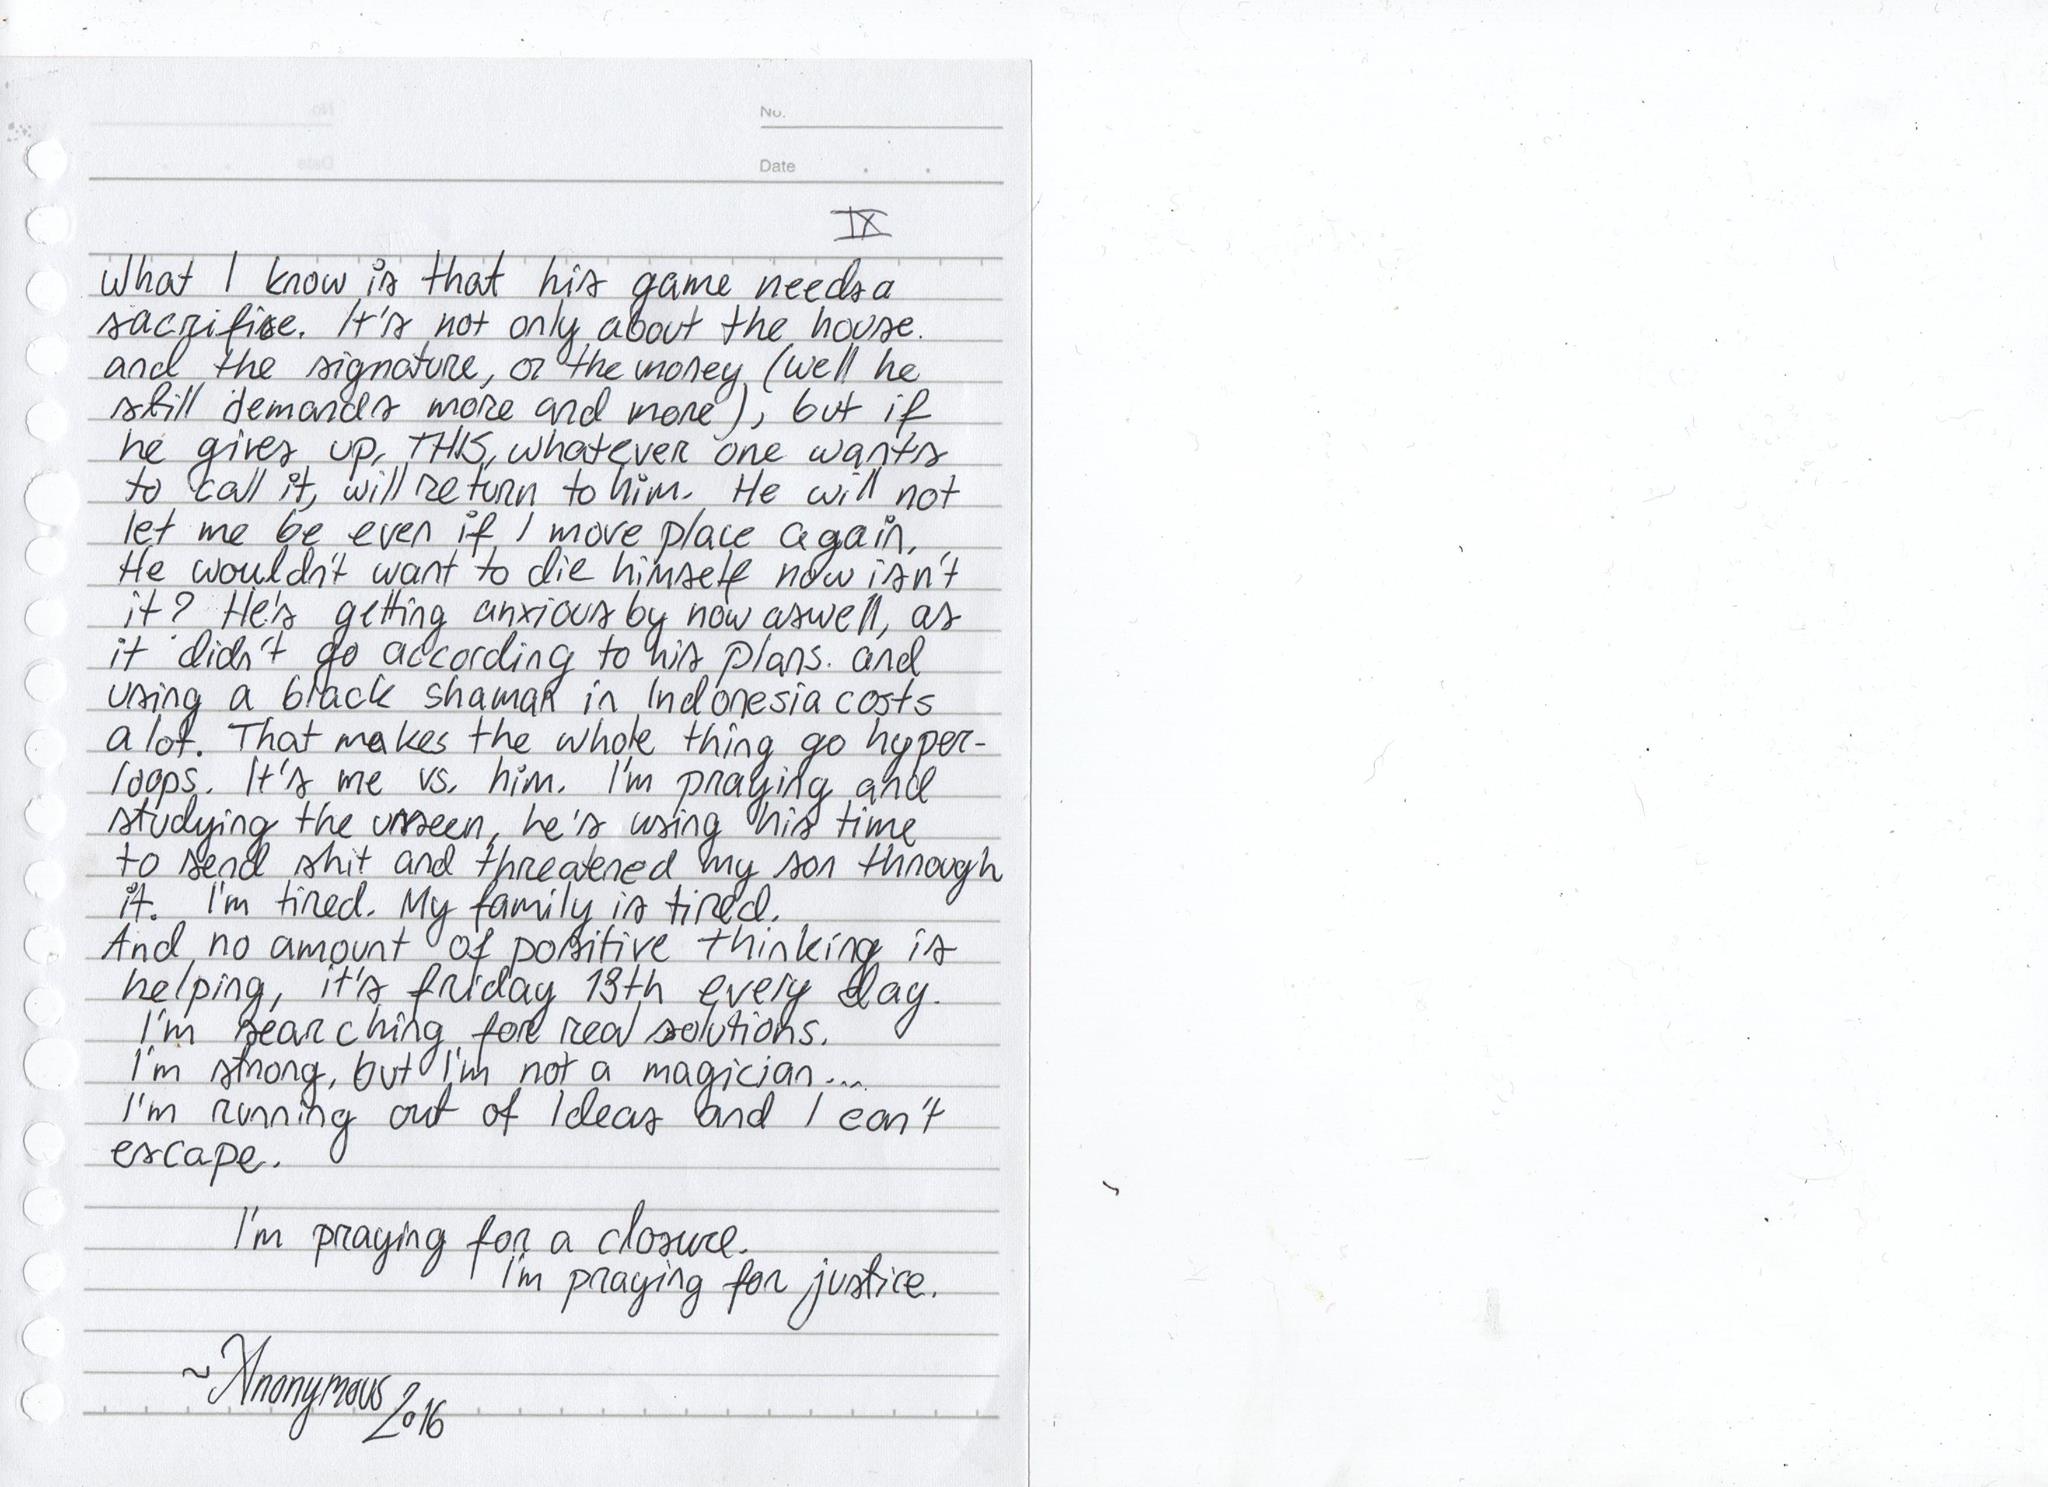 No.
Date . .
IX
What I know is that his game needs a
sacrifise. It's not only about the house.
and the signature, or the money (well he
still demands more and more), but if
he gives up, THIS, whatever one wants
to call it, will return to him. He will not
let me be even if I move place again.
He wouldn't want to die himself now isn't
it? He's getting anxious by now aswell, as
it didn't go according to his plans. and
using a black shaman in Indonesia costs
a lot. That makes the whole thing go hyper-
loops. It's me vs. him. I'm praying and
studying the unseen, he's using his time
to send shit and threatened my son through
it. I'm tired. My family is tired.
And no amount of positive thinking is
helping, it's friday 13th every day.
I'm searching for real solutions.
I'm strong, but I'm not a magician...
I'm running out of Ideas and I can't
escape.
I'm praying for a closure.
I'm praying for justice.
~Anonymous 2016